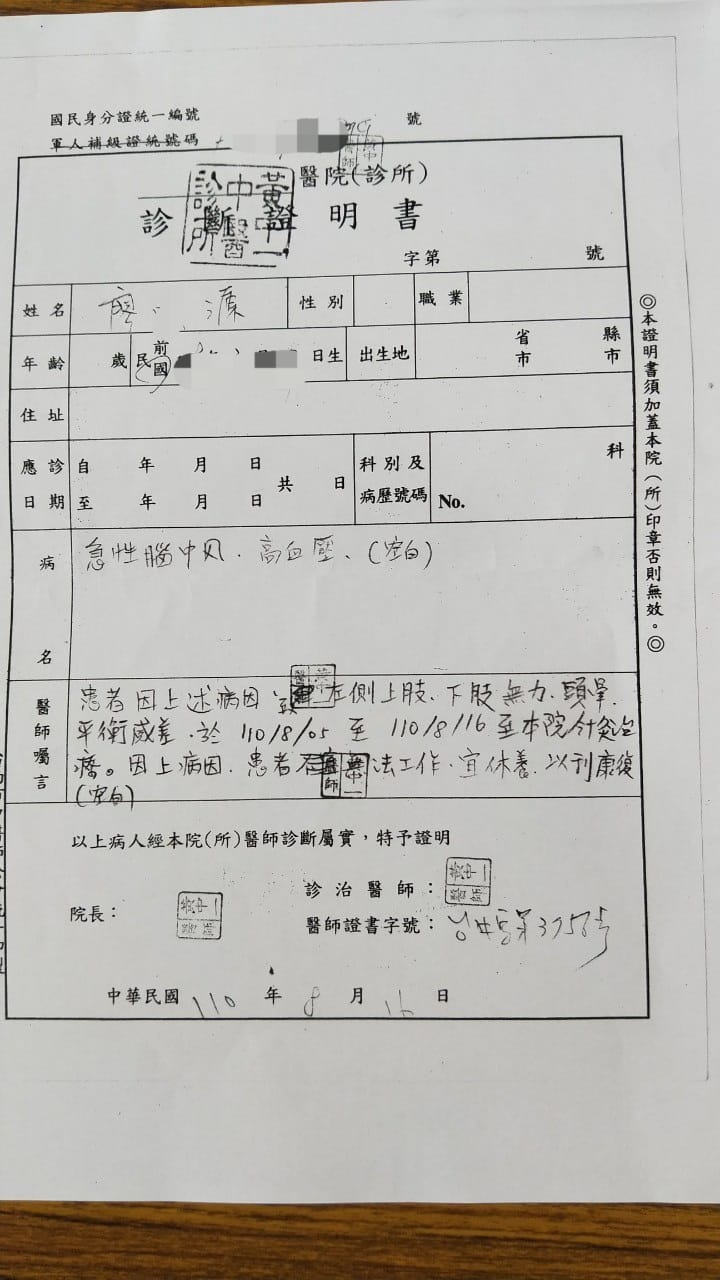 國民身分證統一編號 號
軍人補級證統號碼
黃中一中醫診所
醫院(診所)
診斷證明書
字第 號
姓名 廖 溧 性別 職業
年齡 歲 民前國 日生 出生地 省市 縣市
住址
應診日期 自 年 月 日 至 年 月 日 共 日 科別及病歷號碼 科 No.
病名 急性腦中风、高血壓、(空白)
醫師囑言 患者因上述病因致 左側上肢、下肢無力、頭暈、
平衡感差、於 110/8/05 至 110/8/16 至本院針灸治
療。因上病因、患者 法工作、宜休養、以利康復
(空白)
以上病人經本院(所)醫師診斷屬實,特予證明
院長: 黃中一
診治醫師: 黃中一 醫師
醫師證書字號: 台中醫第3758号
中華民國 110 年 8 月 16 日
◎本證明書須加蓋本院(所)印章否則無效。◎